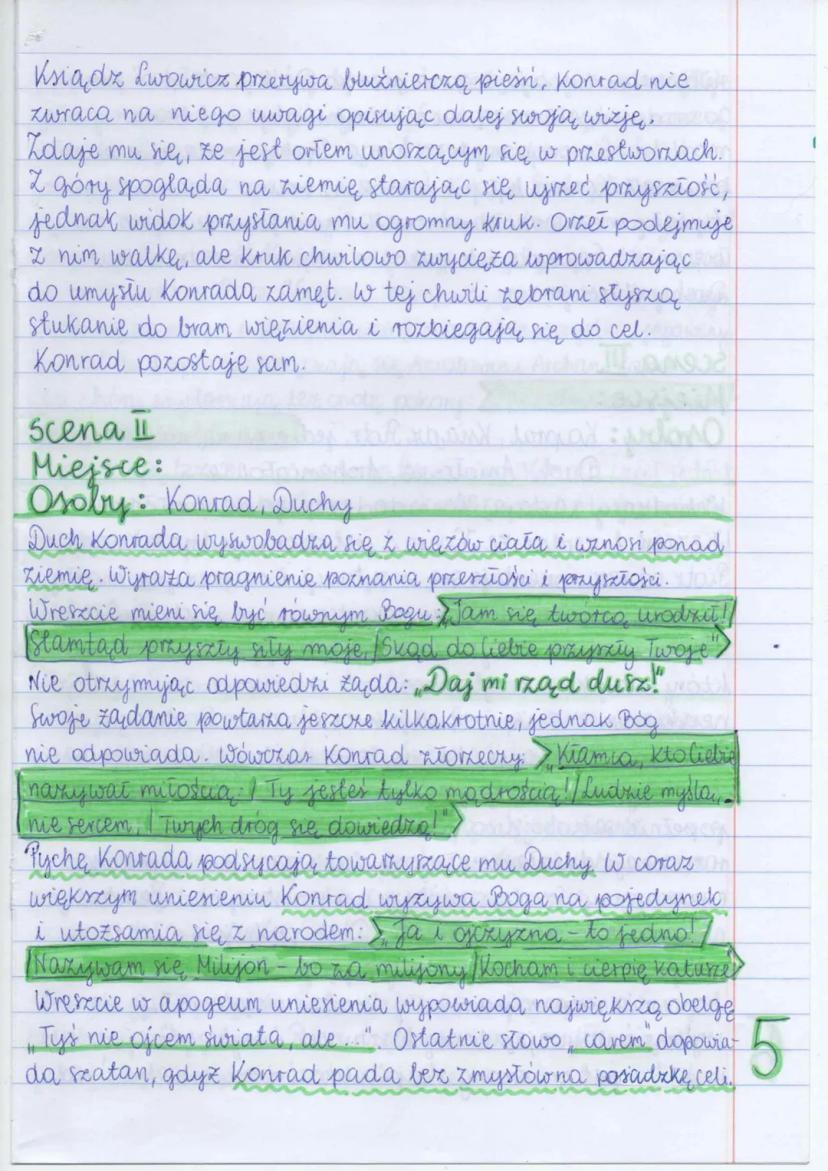 Ksiądz Lwowicz przerywa bluźnierczą pieśń, Konrad nie
zwraca na niego uwagi opisując dalej swoją wizję.
Zdaje mu się, że jest orłem unoszącym się w przestworzach.
Z góry spogląda na ziemię starając się ujrzeć przyszłość,
jednak widok przysłania mu ogromny kruk. Orzeł podejmuje
z nim walkę, ale kruk chwilowo zwycięża wprowadzając
do umysłu Konrada zamęt. W tej chwili zebrani słyszą
stukanie do bram więzienia i rozbiegają się do cel.
Konrad pozostaje sam.
Scena II
Miejsce:
Osoby: Konrad, Duchy
Duch Konrada wyswobadza się z więzów ciała i wznosi ponad
ziemię. Wyraża pragnienie poznania przeszłości i przyszłości.
Wreszcie mieni się być równym Bogu: „Jam się twórcą urodził!/
Stamtąd przyszły siły moje,/Skąd do Ciebie przyszły Twoje"
Nie otrzymując odpowiedzi żąda: „Daj mi rząd dusz!"
Swoje żądanie powtarza jeszcze kilkakrotnie, jednak Bóg
nie odpowiada. Wówczas Konrad złorzeczy: „Kłamca, kto Ciebie
nazywał miłością:/ Ty jesteś tylko mądrością!/Ludzie myślą,
nie sercem,/ Twych dróg się dowiedzą!"
Pychę Konrada podsycają towarzyszące mu Duchy. W coraz
większym uniesieniu Konrad wyzywa Boga na pojedynek
i utożsamia się z narodem: „Ja i ojczyzna – to jedno!/
Nazywam się Milijon – bo za milijony/Kocham i cierpię katusze"
Wreszcie w apogeum uniesienia wypowiada największą obelgę
„Tyś nie ojcem świata, ale ...". Ostatnie słowo „carem" dopowia-
da szatan, gdyż Konrad pada bez zmysłów na posadzkę celi.
5